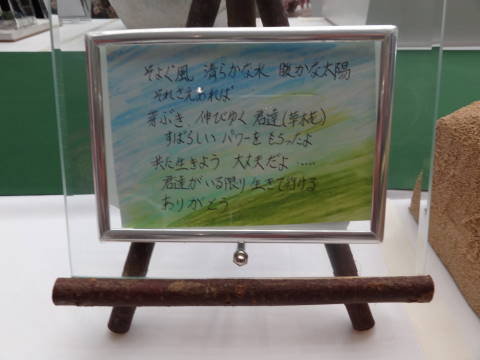 そよぐ風 清らかな水 暖かな太陽
それさえあれば
芽ぶき 伸びゆく 君達(草木も)
すばらしい パワーを もらったよ
共に生きよう 大丈夫だよ ……
君達がいる限り 生きて行ける
ありがとう